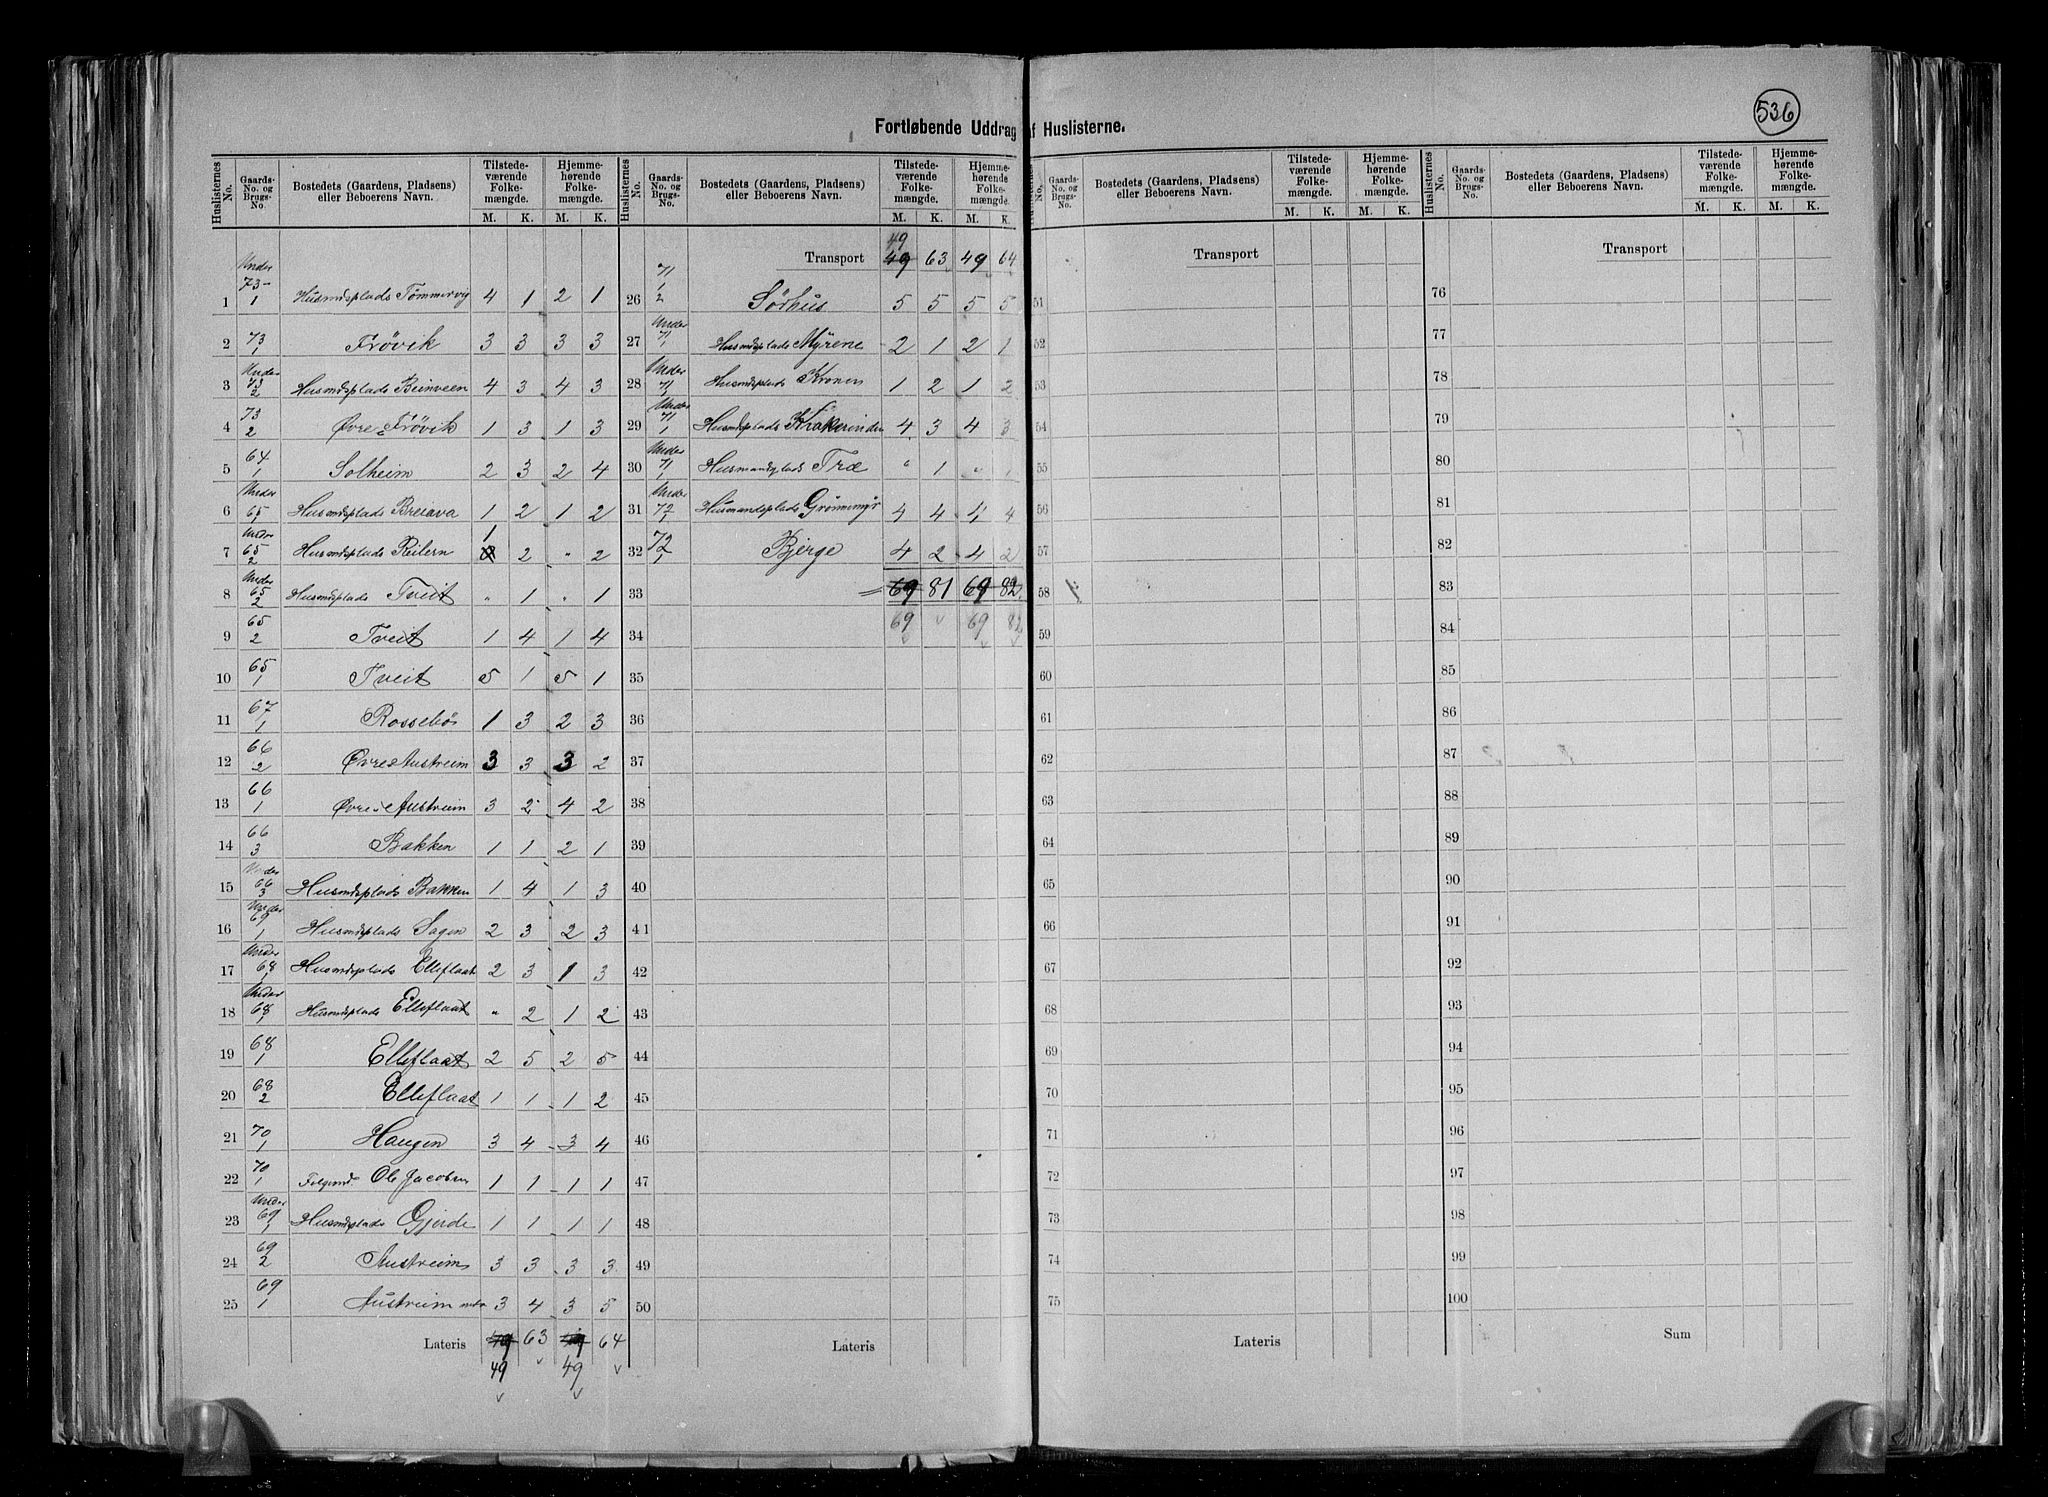 536
Fortløbende Uddrag af Huslisterne.
Huslisternes No. Gaards-No. og Brugs-No. Bostedets (Gaardens, Pladsens) eller Beboerens Navn. Tilstede-værende Folke-mængde. M. K. Hjemme-hørende Folke-mængde. M. K.
1 Under 73 1 Husmdsplads Tømmervig 4 1 2 1
2 73 1 Frövik 3 3 3 3
3 Under 73 2 Husmdsplads 4 3 4 3
4 73 2 Øvre Frövik 1 3 1 3
5 64 1 Solheim 2 3 2 4
6 Under 65 1 Husmdsplads Breiava 1 2 1 2
7 Under 65 2 Husmdsplads Reilern 1 2 " 2
8 Under 65 2 Husmdsplads Tveit " 1 " 1
9 65 2 Tveit 1 4 1 4
10 65 1 Tveit 5 1 5 1
11 67 1 Rossebö 1 3 2 3
12 66 2 Øvre Austreim 3 3 3 2
13 66 1 Øvre Austreim 3 2 4 2
14 66 3 Bakken 1 1 2 1
15 Under 66 3 Husmdsplads Bakken 1 4 1 3
16 Under 69 1 Husmdsplads Sagen 2 3 2 3
17 Under 68 1 Husmdsplads Elleflaat 2 3 1 3
18 Under 68 1 Husmdsplads Elleflaat " 2 1 2
19 68 1 Elleflaat 2 5 2 5
20 68 2 Elleflaat 1 1 1 2
21 70 1 Haugen 3 4 3 4
22 70 1 Ole Jacobsen 1 1 1 1
23 Under 69 1 Husmdsplads Gjerde 1 1 1 1
24 69 2 Austreim 3 3 3 3
25 69 1 Austreim 3 4 3 5
Lateris 49 63 49 64
49 49
Huslisternes No. Gaards-No. og Brugs-No. Bostedets (Gaardens, Pladsens) eller Beboerens Navn. Tilstede-værende Folke-mængde. M. K. Hjemme-hørende Folke-mængde. M. K.
49
Transport 49 63 49 64
26 71 1 2 Sörhus 5 5 5 5
27 Under 71 1 Husmdsplads Myrene 2 1 2 1
28 Under 71 1 Husmdsplads Kronen 1 2 1 2
29 Under 71 1 Husmdsplads 4 3 4 3
30 Under 71 1 Husmandsplads Træ " 1 " 1
31 Under 72 1 Husmandsplads Grönnemyr 4 4 4 4
32 72 1 Bjerge 4 2 4 2
33 69 81 69 82
34 69 69 82
35
36
37
38
39
40
41
42
43
44
45
46
47
48
49
50
Lateris
No. Gaards-No. og Brugs-No. Bostedets (Gaardens, Pladsens) eller Beboerens Navn. Tilstede-værende Folke-mængde. M. K. Hjemme-hørende Folke-mængde. M. K.
Transport
51
52
53
54
55
56
57
58
59
60
61
62
63
64
65
66
67
68
69
70
71
72
73
74
75
Lateris
Huslisternes No. Gaards-No. og Brugs-No. Bostedets (Gaardens, Pladsens) eller Beboerens Navn. Tilstede-værende Folke-mængde. M. K. Hjemme-hørende Folke-mængde. M. K.
Transport
76
77
78
79
80
81
82
83
84
85
86
87
88
89
90
91
92
93
94
95
96
97
98
99
100
Sum